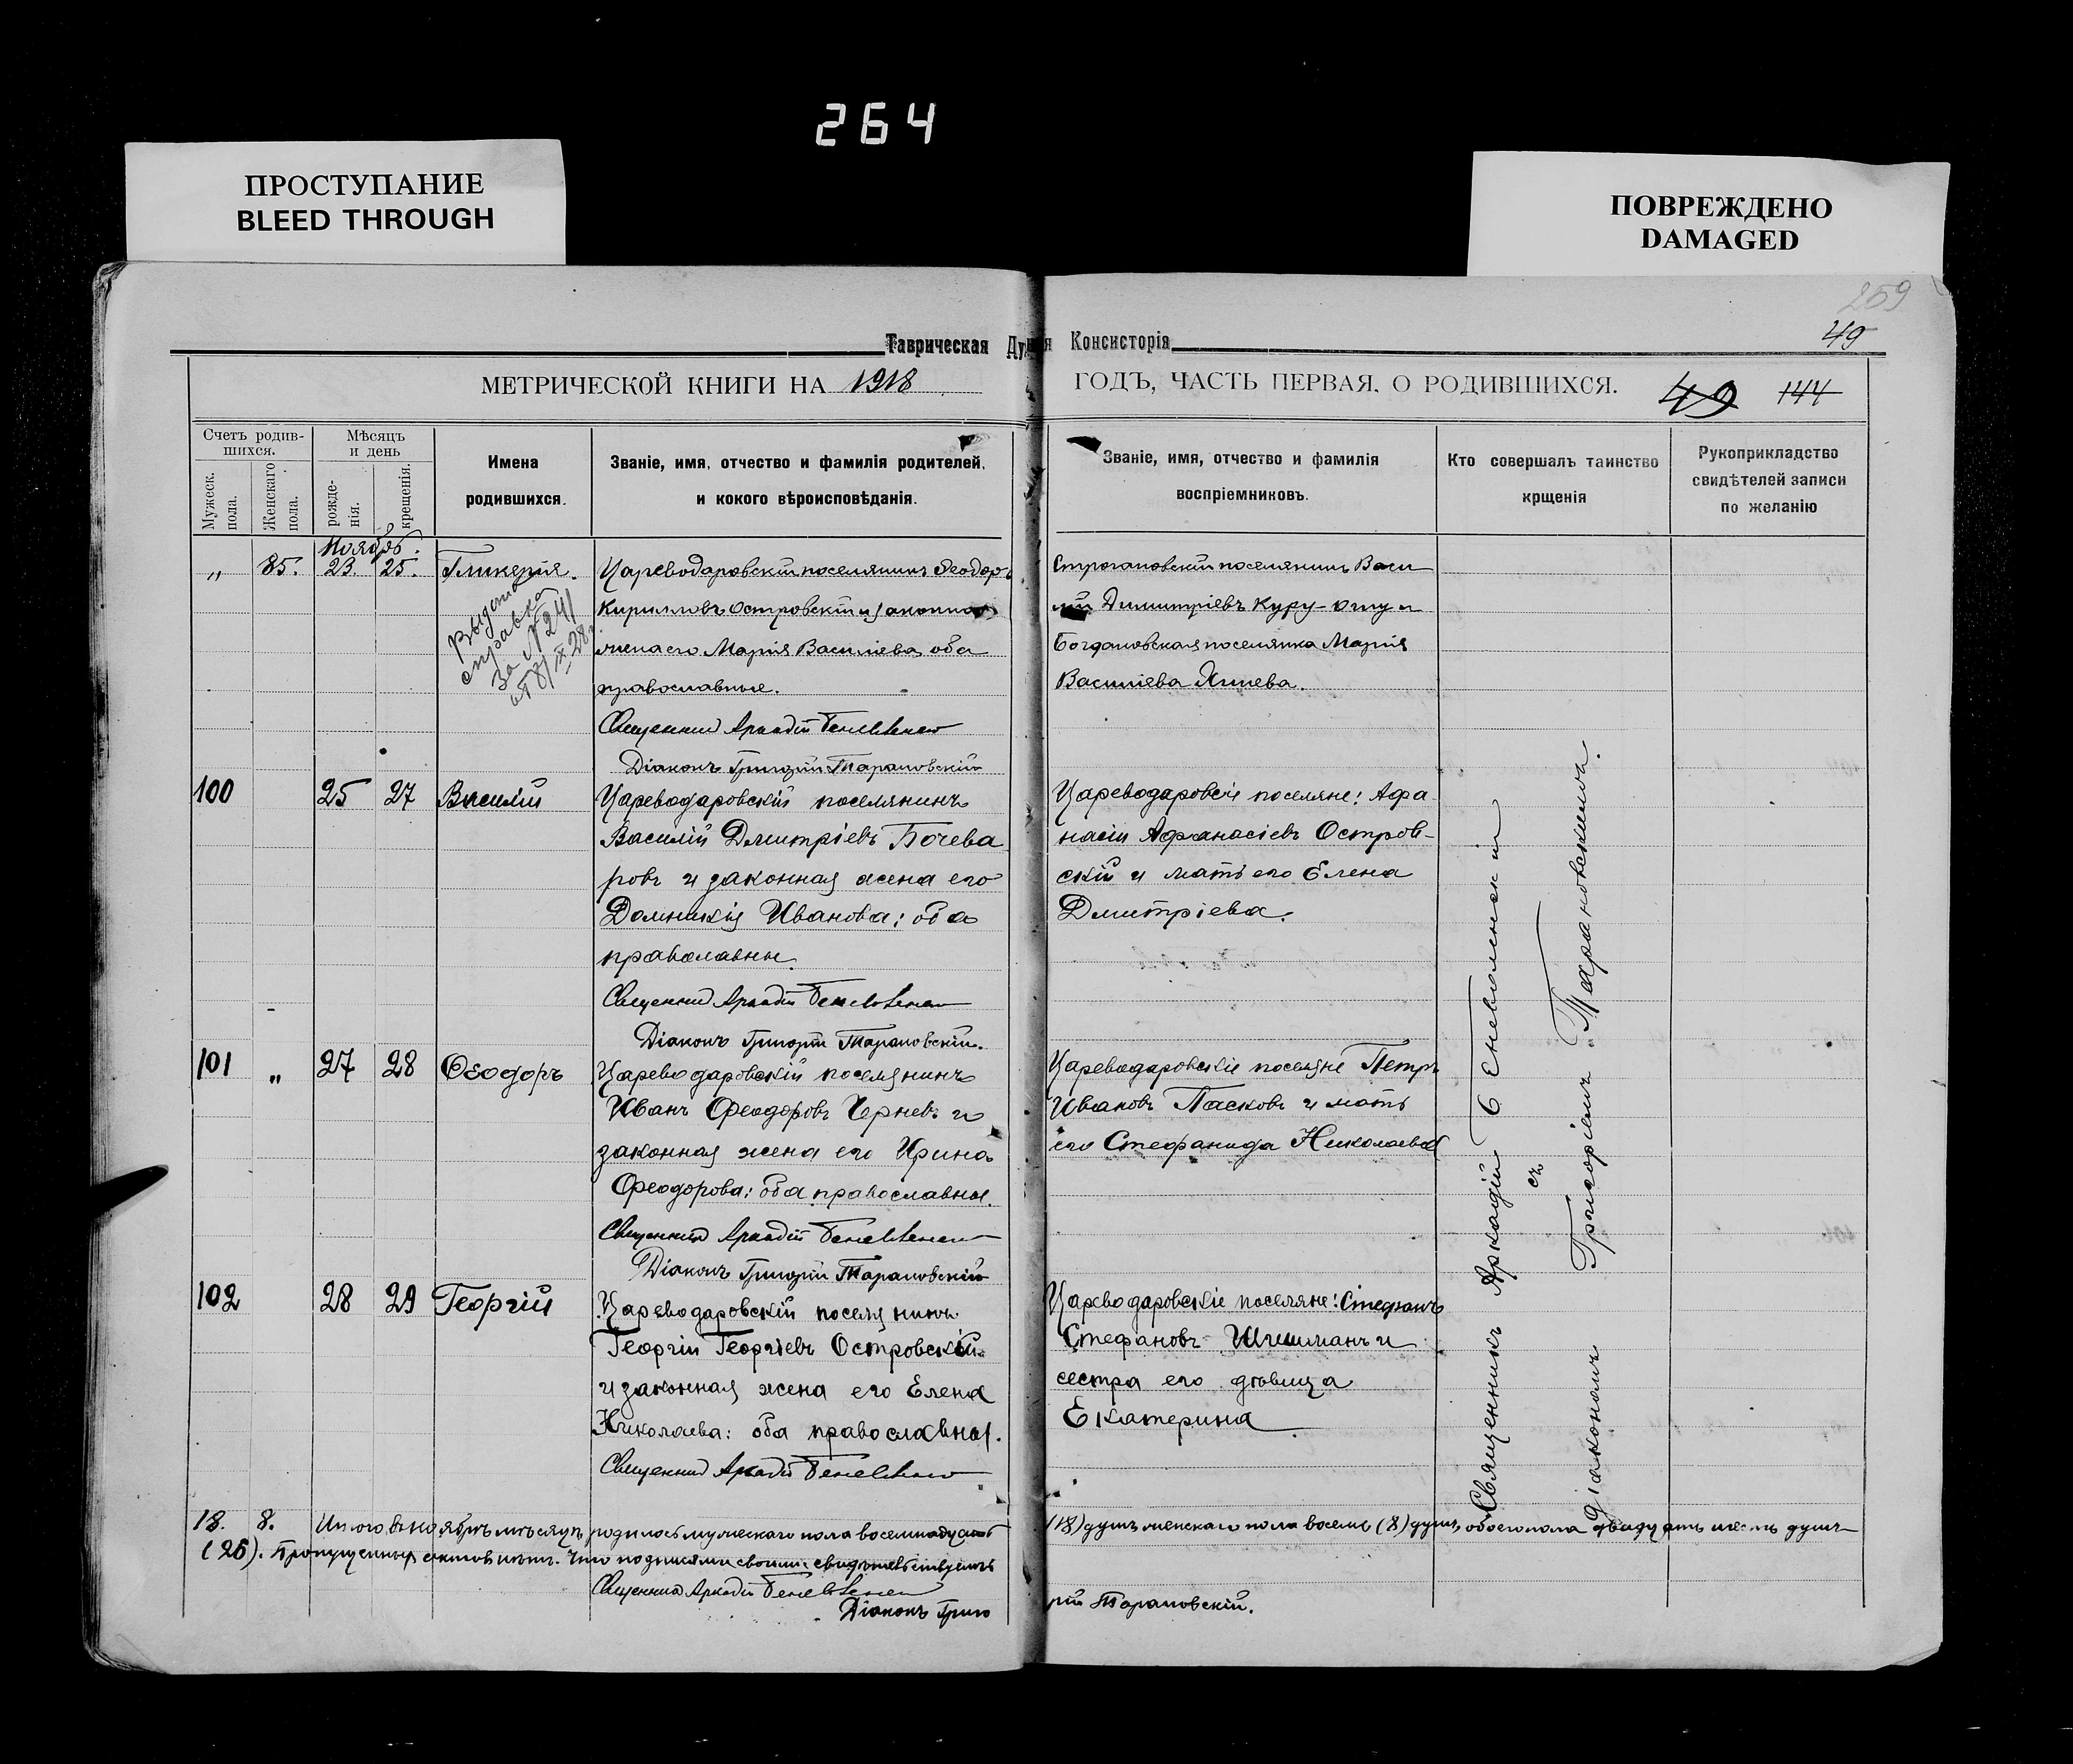 264
ПРОСТУПАНИЕ
BLEED THROUGH
ПОВРЕЖДЕНО
DAMAGED
259
49
Таврическая Ду я Консисторія
МЕТРИЧЕСКОЙ КНИГИ НА 1918 ГОДЪ, ЧАСТЬ ПЕРВАЯ, О РОДИВШИХСЯ. 49 144
Счетъ родив-
шихся.
Мужеск.
пола.
Женскаго
пола.
Мѣсяцъ
и день
рожде-
нія.
крещенія.
Имена
родившихся.
Званіе, имя, отчество и фамилія родителей,
и кокого вѣроисповѣданія.
Званіе, имя, отчество и фамилія
воспріемниковъ.
Кто совершалъ таинство
крщенія
Рукоприкладство
свидѣтелей записи
по желанію
Ноябрь.
„ 85. 23. 25. Гликерія.
Выдана
справка
за № 241
от 8/IX 28
Цареводаровскій поселянинъ Ѳеодоръ
Кирилловъ Островскій и законная
жена его Марія Василіева, оба
православные.
Священник Аркадій
Діаконъ Григорій Тарановскій
Строгановскій поселянинъ Васи
лій Димитріевъ Куру-
Богдановская поселянка Марія
Василіева
100 25 27 Василій
Цареводаровскій поселянинъ
Василій Дмитріевъ Бочева
ровъ и законная жена его
Домникія Иванова; оба
православны.
Священник Аркадій
Діаконъ Григорій Тарановскій.
Цареводаровскіе поселяне: Афа
насій Афанасіевъ Остров-
скій и мать его Елена
Дмитріева.
101 „ 27 28 Ѳеодоръ
Цареводаровскій поселянинъ
Иванъ Феодоровъ Черневъ и
законная жена его Ирина
Феодорова; оба православны.
Священник Аркадій
Діаконъ Григорій Тарановскій
Цареводаровскіе поселяне Петръ
Ивановъ Пасковъ и мать
его Стефанида Николаева
102 28 29 Георгій
Цареводаровскій поселянинъ
Георгій Георгіевъ Островскій
и законная жена его Елена
Николаева: оба православны.
Священник Аркадій
Цареводаровскіе поселяне: Стефанъ
Стефановъ Шишманъ и
сестра его дѣвица
Екатерина
Священникъ Аркадій
съ
діакономъ Григоріемъ Тарановскимъ.
18. 8. Итого въ ноябрѣ мѣсяцѣ родилось мужескаго пола восемнадцать (18) душъ женскаго пола восемь (8) душъ, обоего пола двадцать шесть душъ
(26). Пропущенныхъ актовъ нѣтъ. Что подписями своими свидѣтельствуемъ
Священник Аркадій
Діаконъ Григо рій Тарановскій.